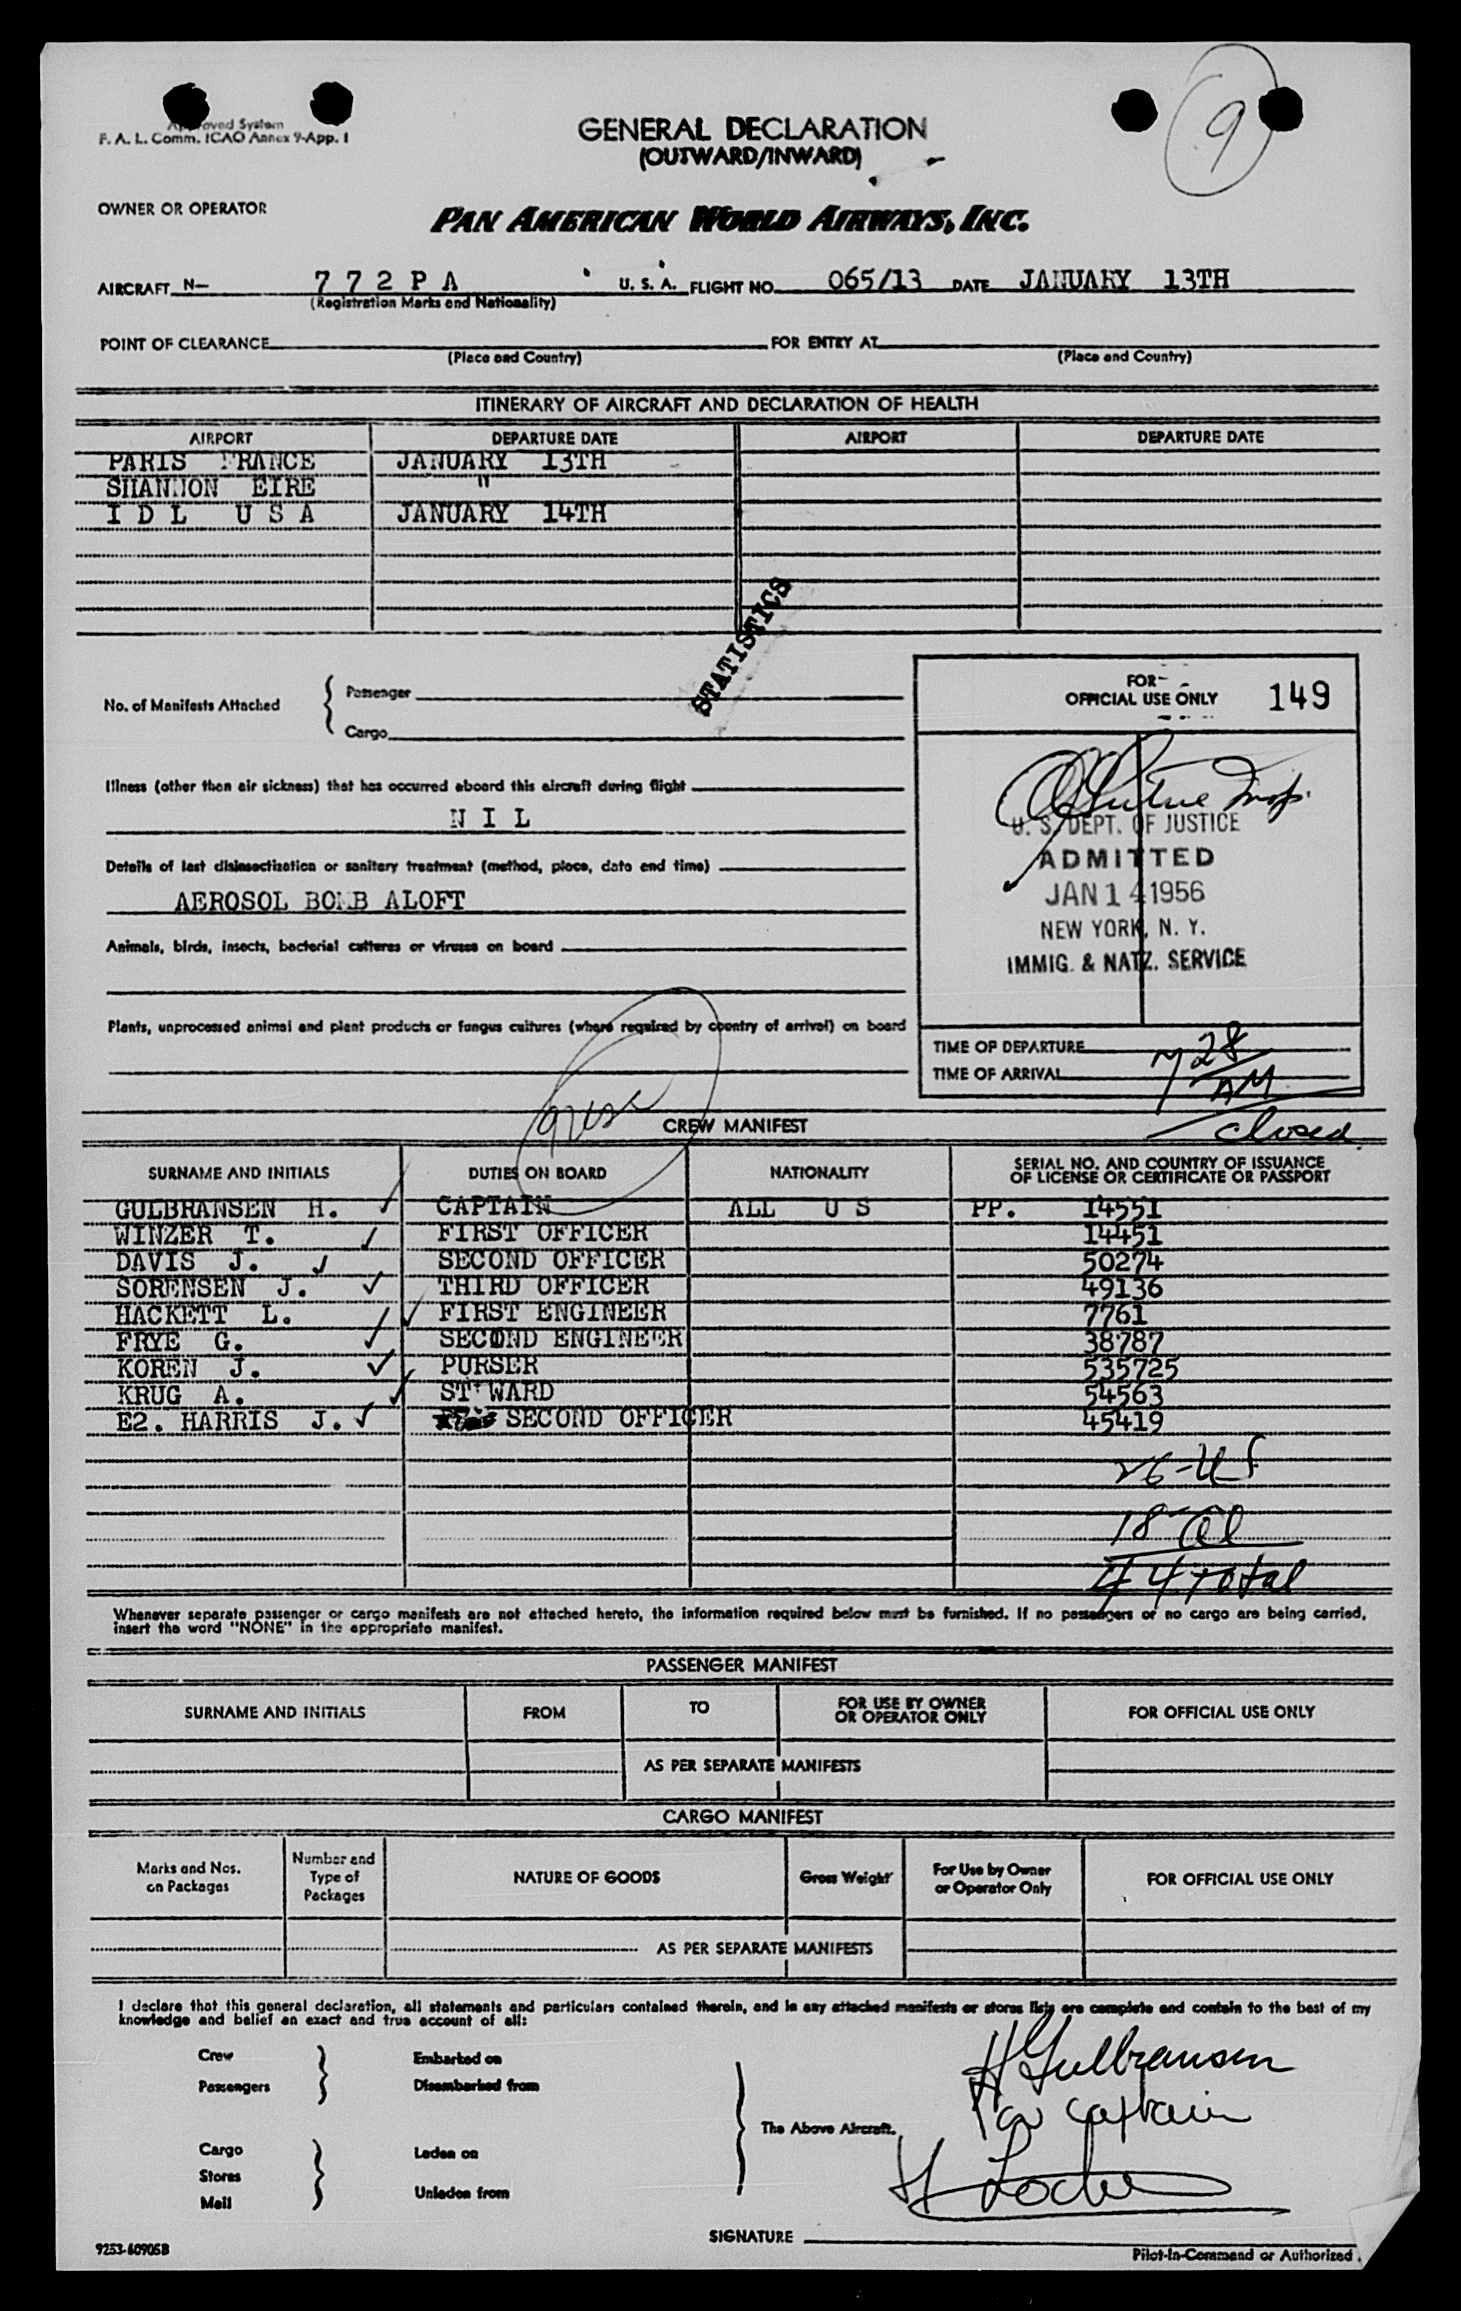 9
Approved System
F. A. L. Comm. ICAO Annex 9-App. I
GENERAL DECLARATION
(OUTWARD/INWARD)
OWNER OR OPERATOR
PAN AMERICAN WORLD AIRWAYS, INC.
AIRCRAFT N- 7 7 2 P A U. S. A. FLIGHT NO. 065/13 DATE JANUARY 13TH
(Registration Marks and Nationality)
POINT OF CLEARANCE FOR ENTRY AT
(Place and Country) (Place and Country)
ITINERARY OF AIRCRAFT AND DECLARATION OF HEALTH
AIRPORT DEPARTURE DATE AIRPORT DEPARTURE DATE
PARIS FRANCE JANUARY 13TH
SHANNON EIRE "
I D L U S A JANUARY 14TH
STATISTICS
No. of Manifests Attached { Passenger
Cargo
FOR
OFFICIAL USE ONLY 149
Illness (other than air sickness) that has occurred aboard this aircraft during flight
N I L
Details of last disinsectization or sanitary treatment (method, place, date and time)
AEROSOL BOMB ALOFT
Animals, birds, insects, bacterial cultures or viruses on board
Plants, unprocessed animal and plant products or fungus cultures (where required by country of arrival) on board
U. S. DEPT. OF JUSTICE
ADMITTED
JAN 14 1956
NEW YORK, N. Y.
IMMIG. & NATZ. SERVICE
TIME OF DEPARTURE
TIME OF ARRIVAL
7 28
AM
closed
CREW MANIFEST
SURNAME AND INITIALS DUTIES ON BOARD NATIONALITY SERIAL NO. AND COUNTRY OF ISSUANCE
OF LICENSE OR CERTIFICATE OR PASSPORT
GULBRANSEN H. CAPTAIN ALL U S PP. 14551
WINZER T. FIRST OFFICER 14451
DAVIS J. SECOND OFFICER 50274
SORENSEN J. THIRD OFFICER 49136
HACKETT L. FIRST ENGINEER 7761
FRYE G. SECOND ENGINEER 38787
KOREN J. PURSER 535725
KRUG A. STEWARD 54563
E2. HARRIS J. SECOND OFFICER 45419
26-US
18-Al
44 total
Whenever separate passenger or cargo manifests are not attached hereto, the information required below must be furnished. If no passengers or no cargo are being carried,
insert the word "NONE" in the appropriate manifest.
PASSENGER MANIFEST
SURNAME AND INITIALS FROM TO FOR USE BY OWNER
OR OPERATOR ONLY FOR OFFICIAL USE ONLY
AS PER SEPARATE MANIFESTS
CARGO MANIFEST
Marks and Nos.
on Packages Number and
Type of
Packages NATURE OF GOODS Gross Weight For Use by Owner
or Operator Only FOR OFFICIAL USE ONLY
AS PER SEPARATE MANIFESTS
I declare that this general declaration, all statements and particulars contained therein, and in any attached manifests or stores lists are complete and contain to the best of my
knowledge and belief an exact and true account of all:
Crew Embarked on
Passengers Disembarked from
The Above Aircraft.
Cargo Laden on
Stores
Mail Unladen from
H Gulbransen
Captain
H Locke
SIGNATURE
Pilot-in-Command or Authorized
9253-60905B